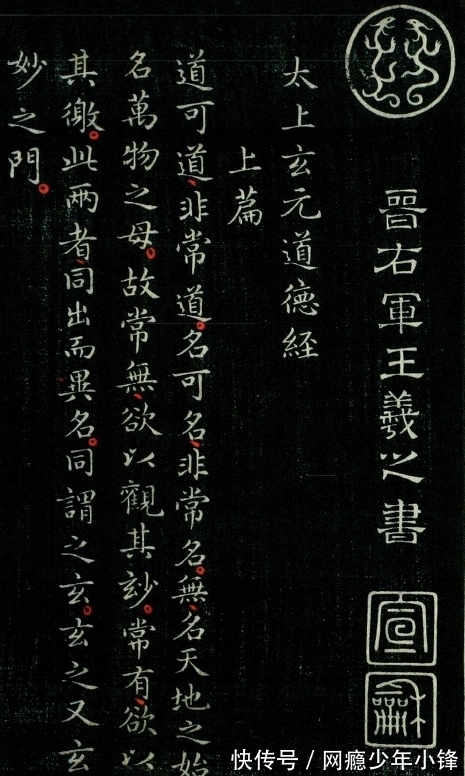 晉右軍王羲之書
宣
龢
太上玄元道德經
上篇
道可道、非常道。名可名、非常名。無名天地之始
名萬物之母。故常無、欲以觀其玅。常有、欲以
其徼。此兩者、同出而異名。同謂之玄。玄之又玄
妙之門。
快传号 / 网瘾少年小锋